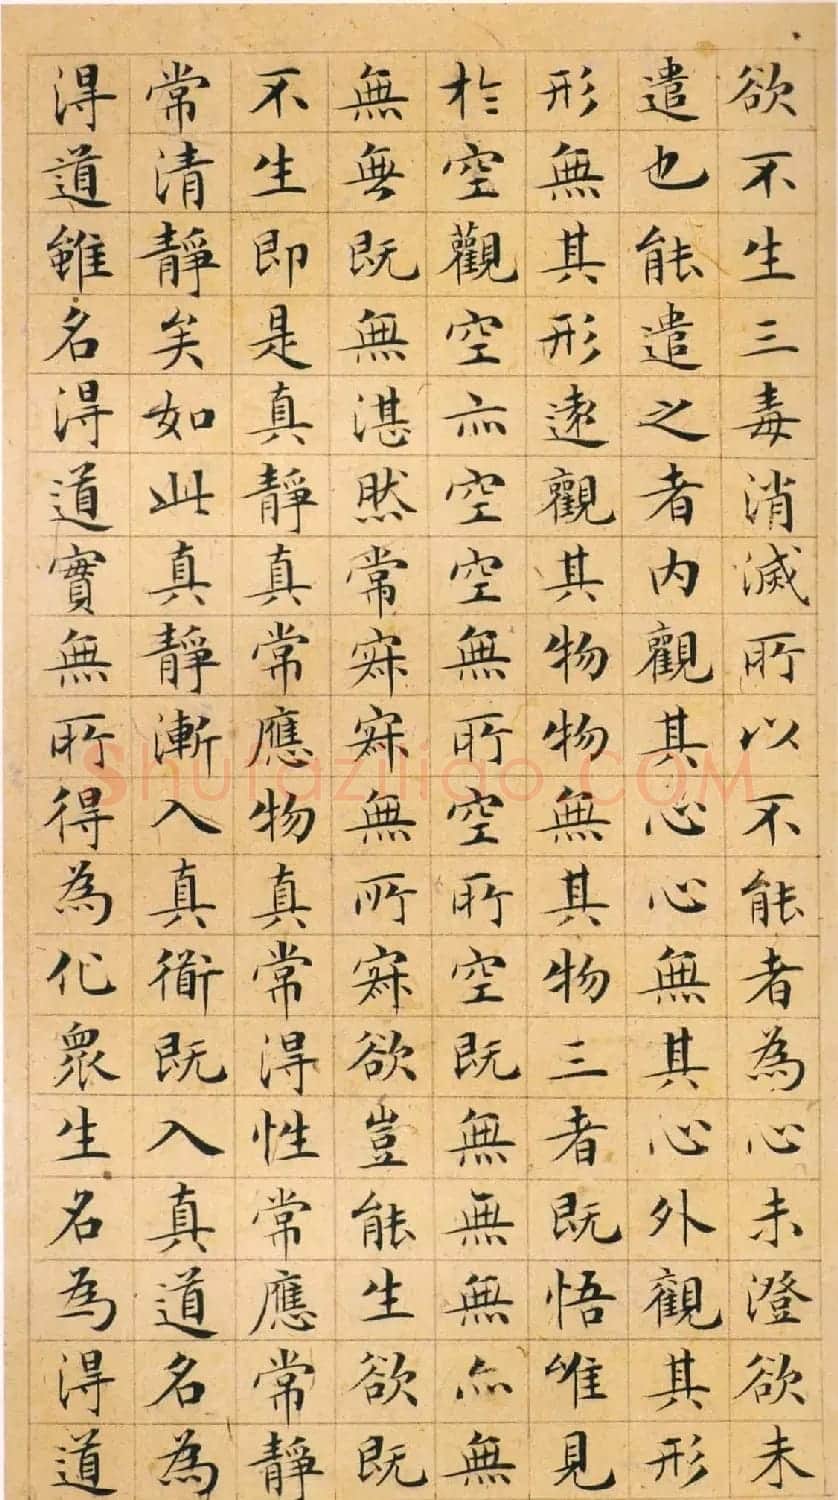 欲不生三毒消滅所以不能者為心未澄欲未
遣也能遣之者内觀其心心無其心外觀其形
形無其形遠觀其物物無其物三者既悟唯見
於空觀空亦空空無所空所空既無無無亦無
無無既無湛然常寂寂無所寂欲豈能生欲既
不生即是真靜真常應物真常得性常應常靜
常清靜矣如此真靜漸入真衜既入真道名為
得道雖名得道實無所得為化衆生名為得道
shufaziliao.COM